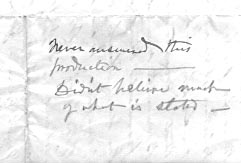 Never answered this
production ———
Didn't believe much
of what is stated —